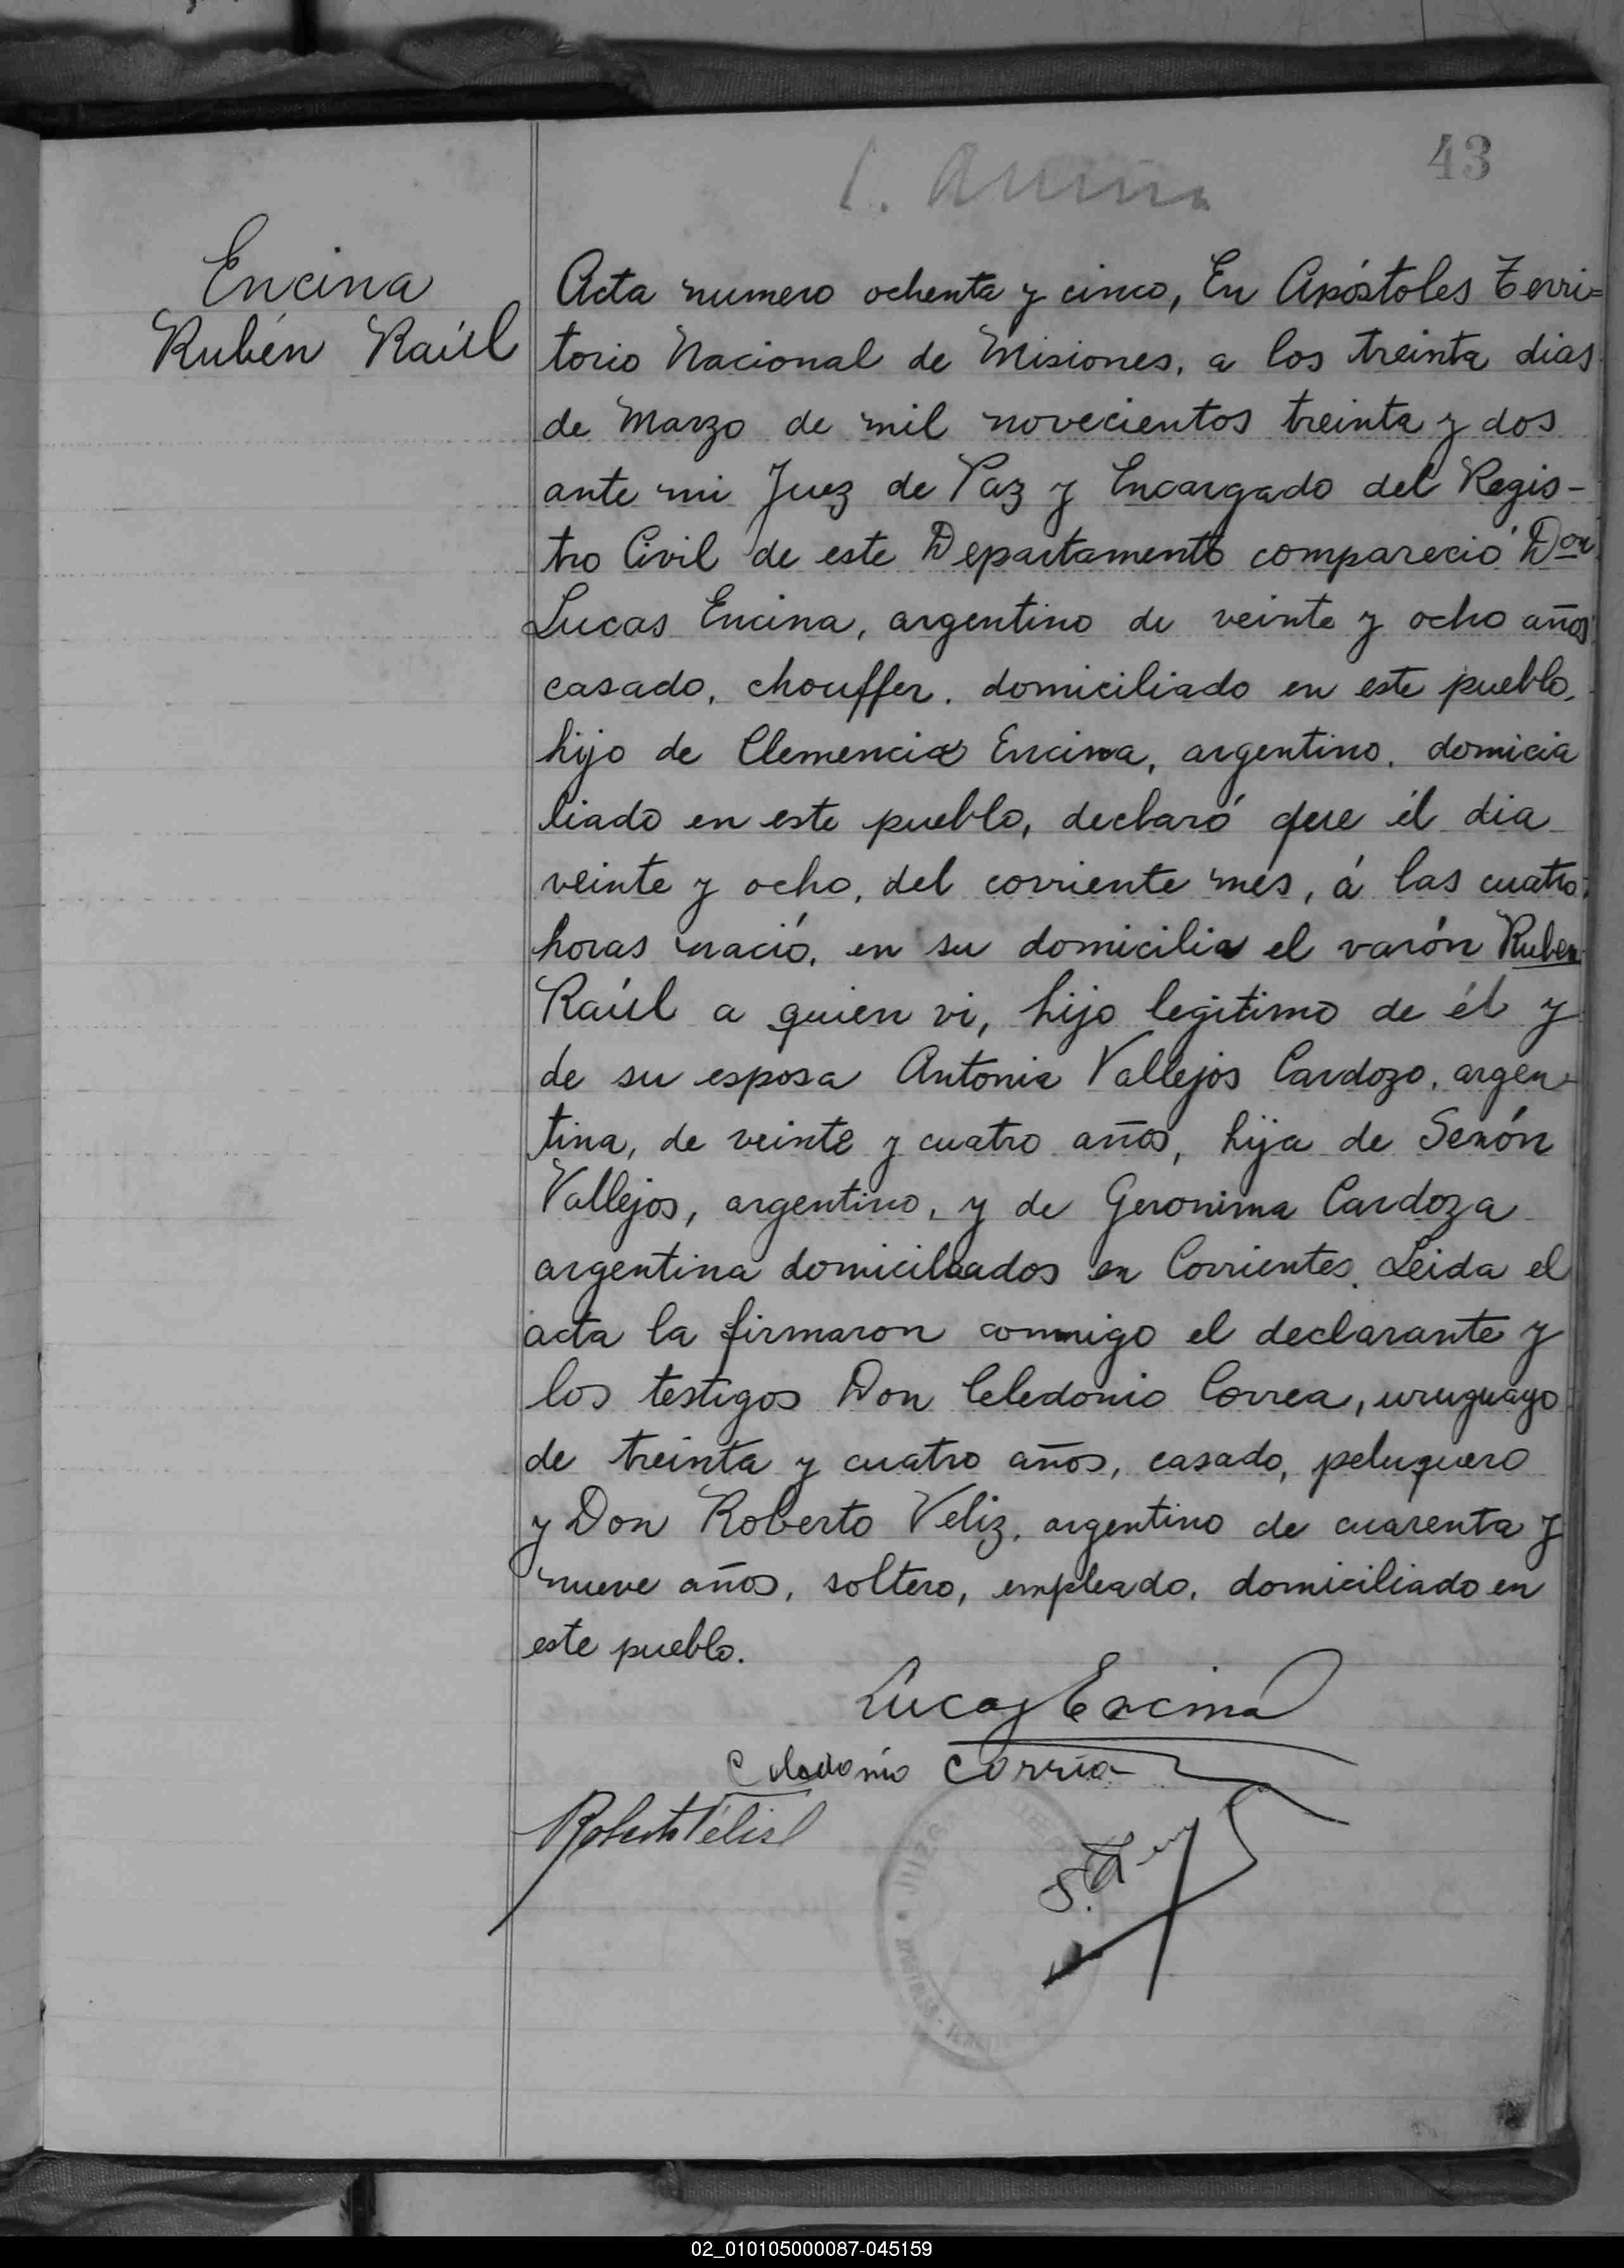 43
Encina
Rubén Raúl
Acta numero ochenta y cinco, En Apóstoles Terri=
torio Nacional de Misiones, a los treinta dias
de Marzo de mil novecientos treinta y dos
ante mi Juez de Paz y Encargado del Regis-
tro Civil de este Departamento compareció Don
Lucas Encina, argentino de veinte y ocho años
casado, chouffer. domiciliado en este pueblo,
hijo de Clemencia Encina, argentino. domicia
liado en este pueblo, declaró que él dia
veinte y ocho, del corriente més, á las cuatro
horas nació, en su domicilio el varón Ruben
Raúl a quien vi, hijo legitimo de él y
de su esposa Antonia Vallejos Cardozo, argen-
tina, de veinte y cuatro años, hija de Senón
Vallejos, argentino, y de Geronima Cardoza
argentina domiciliados en Corrientes. Leida el
acta la firmaron conmigo el declarante y
los testigos Don Celedonio Correa, uruguayo
de treinta y cuatro años, casado, peluquero
y Don Roberto Veliz, argentino de cuarenta y
nueve años, soltero, empleado, domiciliado en
este pueblo.
Lucas Encina
Celedonio Correa
Roberto Velis
02_010105000087-045159